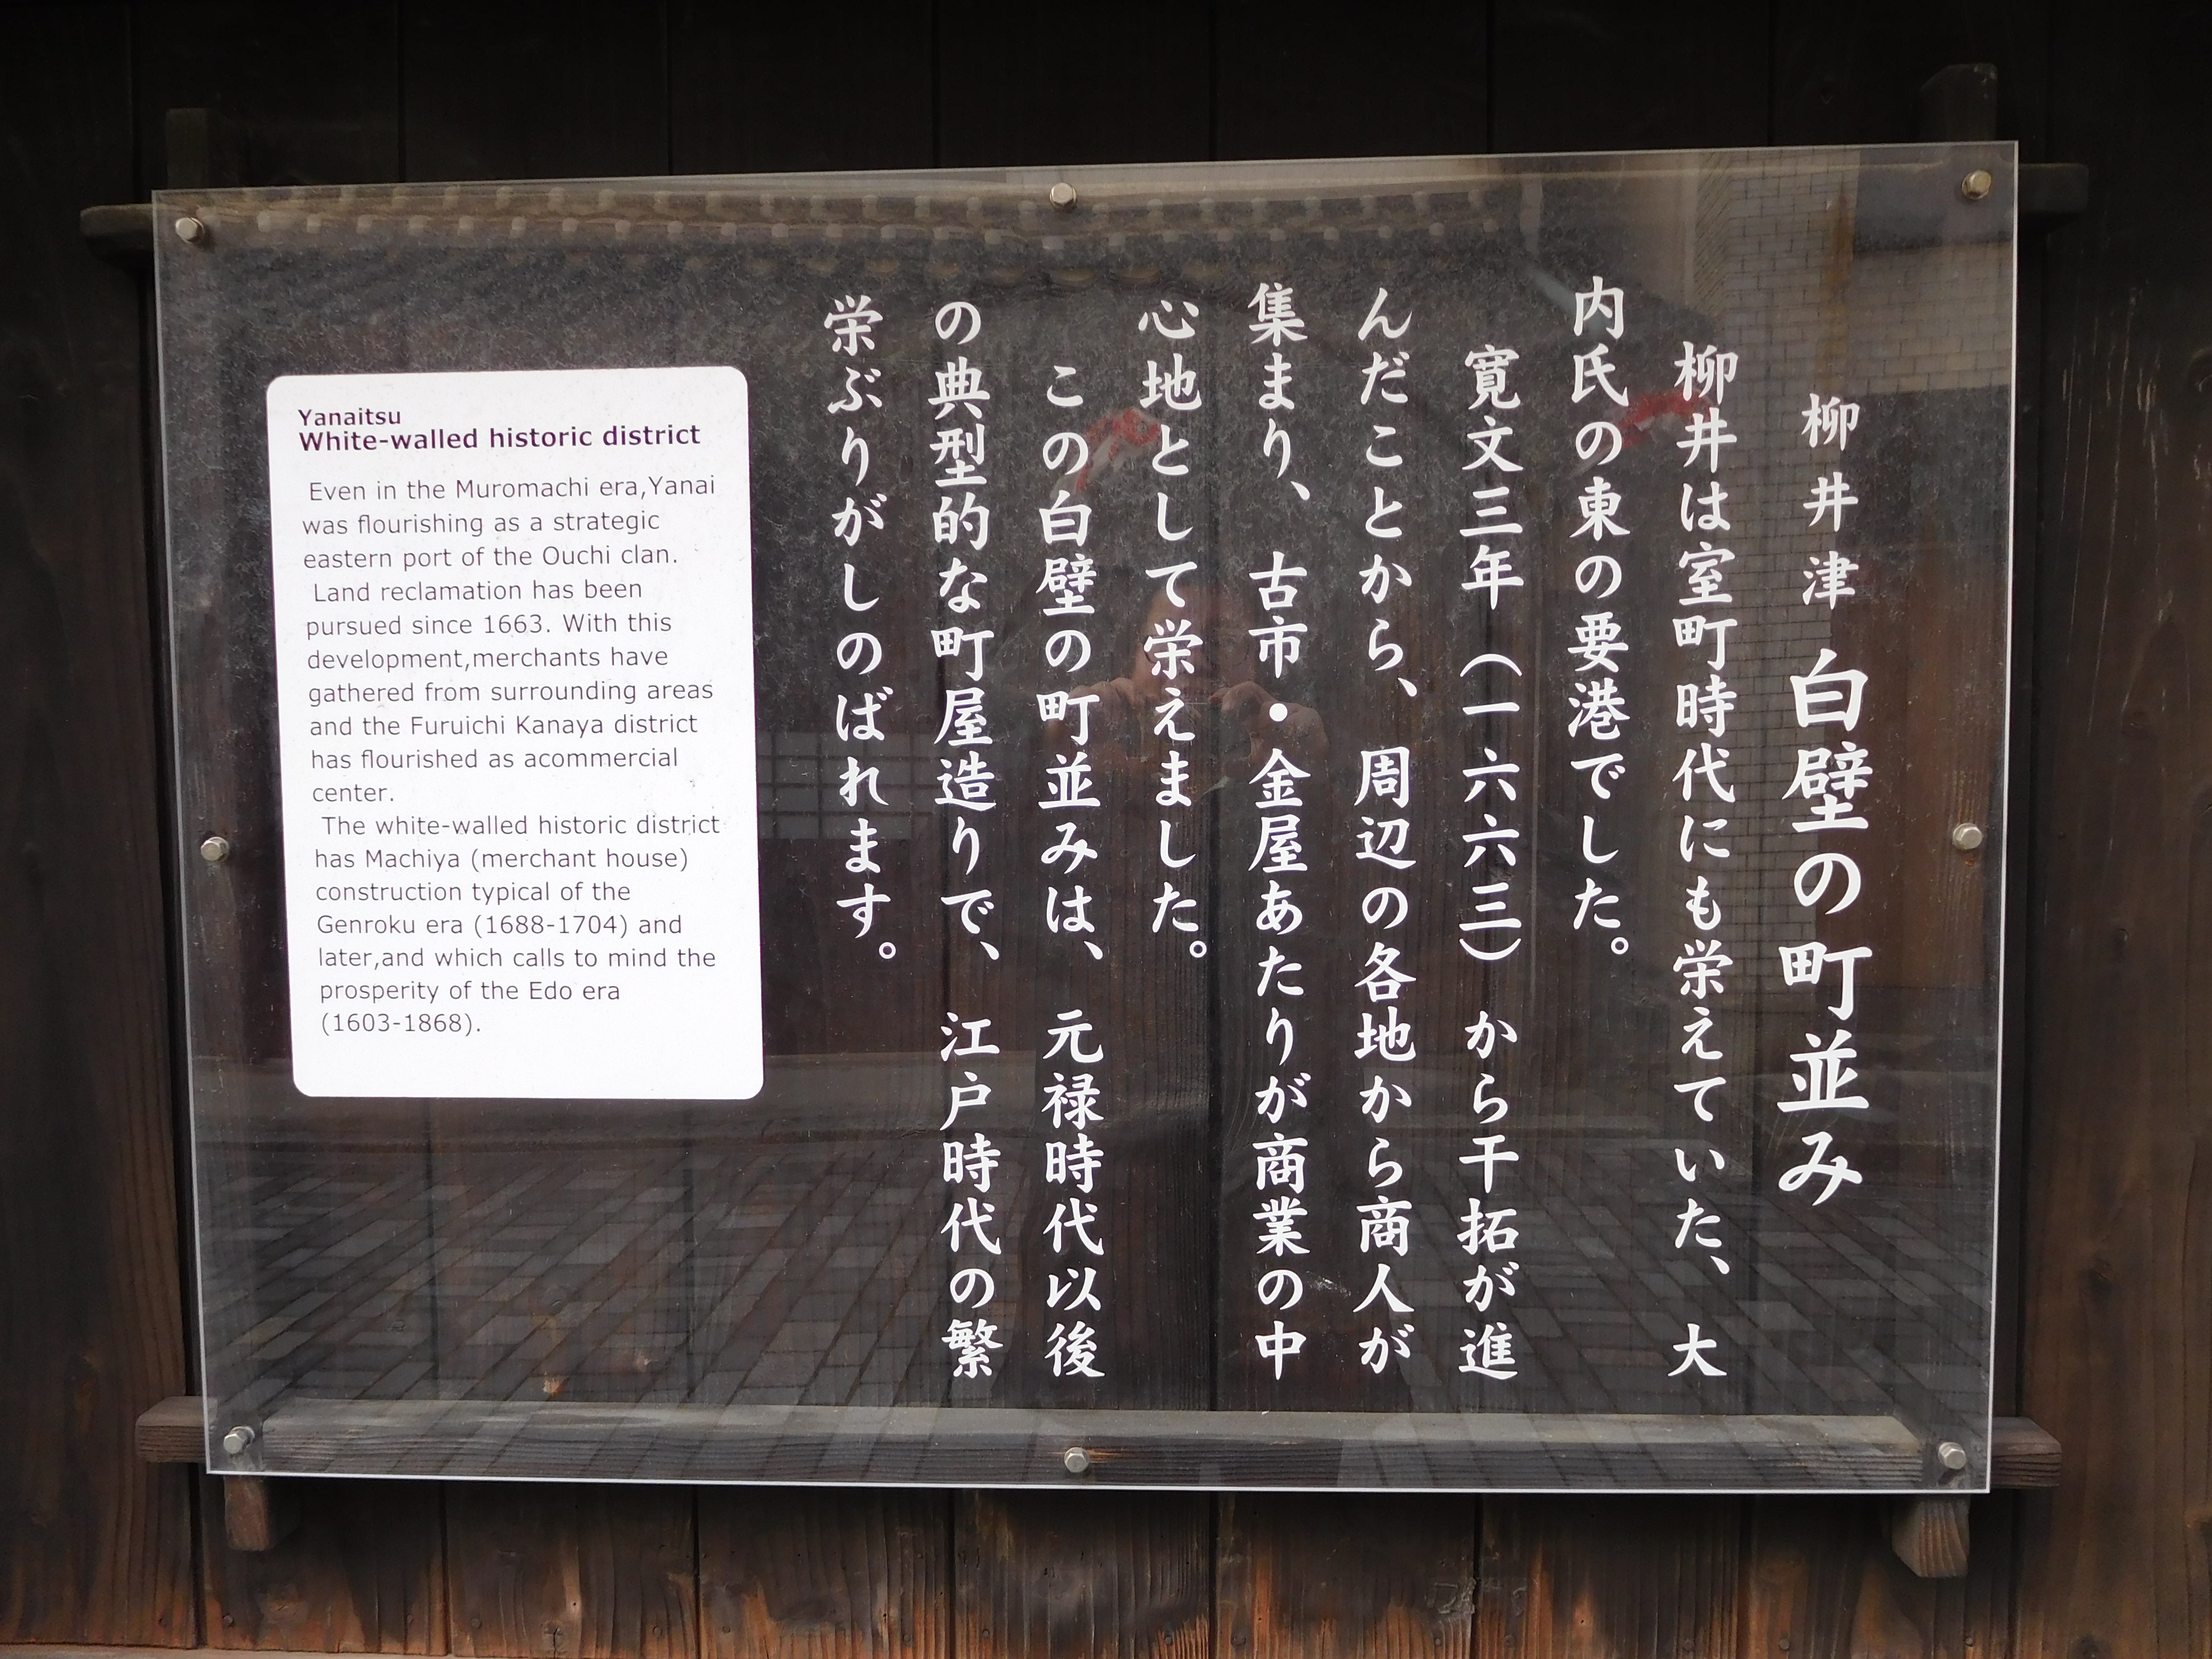 柳井津 白壁の町並み
柳井は室町時代にも栄えていた、大
内氏の東の要港でした。
寛文三年（一六六三）から干拓が進
んだことから、周辺の各地から商人が
集まり、古市・金屋あたりが商業の中
心地として栄えました。
この白壁の町並みは、元禄時代以後
の典型的な町屋造りで、江戸時代の繁
栄ぶりがしのばれます。
Yanaitsu
White-walled historic district
Even in the Muromachi era,Yanai
was flourishing as a strategic
eastern port of the Ouchi clan.
Land reclamation has been
pursued since 1663. With this
development,merchants have
gathered from surrounding areas
and the Furuichi Kanaya district
has flourished as acommercial
center.
The white-walled historic district
has Machiya (merchant house)
construction typical of the
Genroku era (1688-1704) and
later,and which calls to mind the
prosperity of the Edo era
(1603-1868).